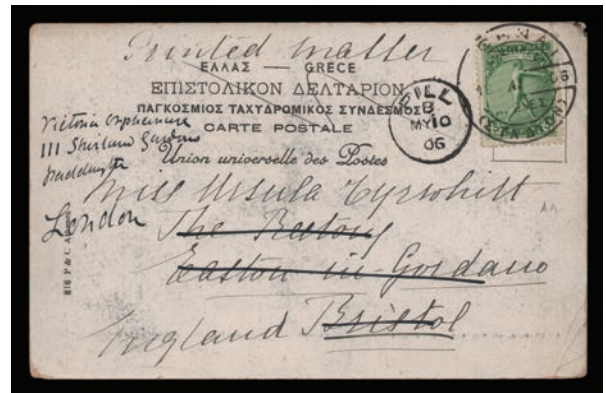 Printed matter
ΕΛΛΑΣ — GRECE
ΕΠΙΣΤΟΛΙΚΟΝ ΔΕΛΤΑΡΙΟΝ
ΠΑΓΚΟΣΜΙΟΣ ΤΑΧΥΔΡΟΜΙΚΟΣ ΣΥΝΔΕΣΜΟΣ
CARTE POSTALE
Union universelle des Postes
B
MY 10
06
(ΣΤΑΔΙΟΝ)
Victoria Orphanage
111 Shirland Gardens
Paddington
London
Miss Ursula Tyrwhitt
The Rectory
Easton in Gordano
England Bristol
816 P & C